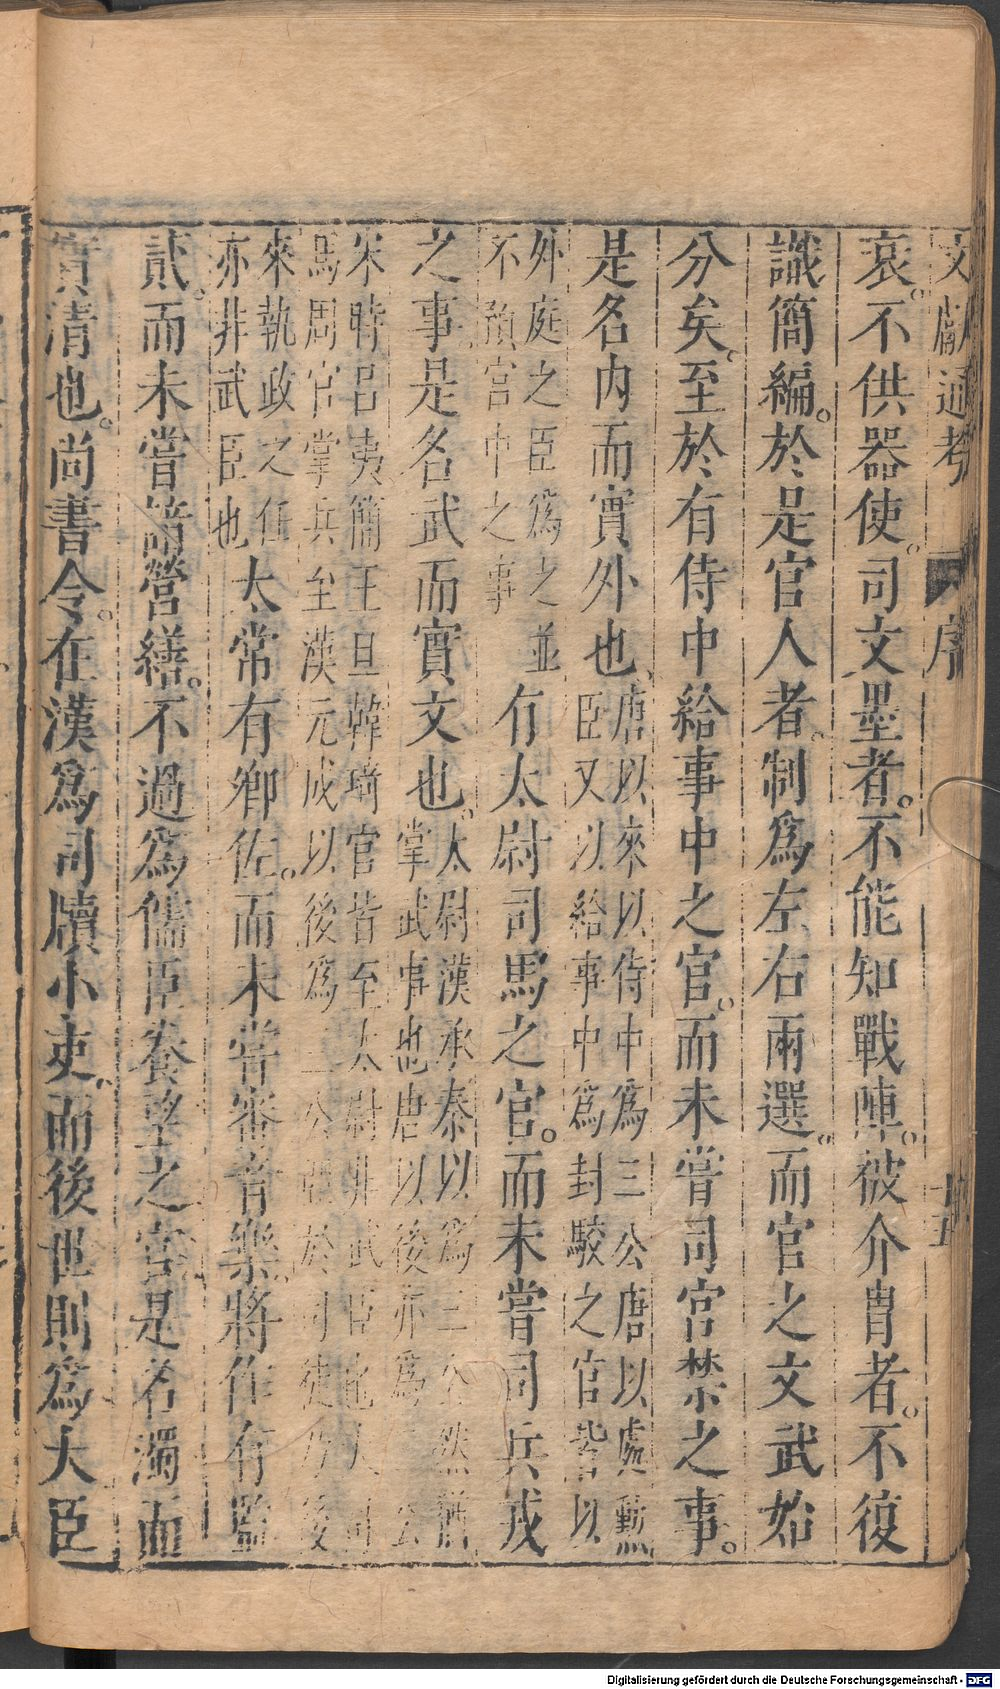 文獻通考 序 十五
衰。不供器使。司文墨者。不能知戰陣。被介冑者。不復
識簡編。於是官人者。制爲左右兩選。而官之文武始
分矣。至於有侍中給事中之官。而未嘗司宮禁之事。
是名内而實外也
唐以來以侍中爲三公唐以處勳
臣又以給事中爲封駮之官皆以
外庭之臣爲之並
不預宮中之事
有太尉司馬之官。而未嘗司兵戎
之事是名武而實文也。
太尉漢承秦以爲三公然猶
掌武事也唐以後亦爲三公
宋時呂夷簡王旦韓琦官皆至太尉非武臣也大司
馬周官掌兵至漢元成以後爲三公亞於司徒乃後
來執政之任
亦非武臣也
太常有卿佐。而未嘗審音樂。將作有監
貳。而未嘗諳營繕。不過爲儒臣養望之官是名濁而
實清也。尚書令。在漢爲司牘小吏。而後世則爲大臣
Digitalisierung gefördert durch die Deutsche Forschungsgemeinschaft - DFG